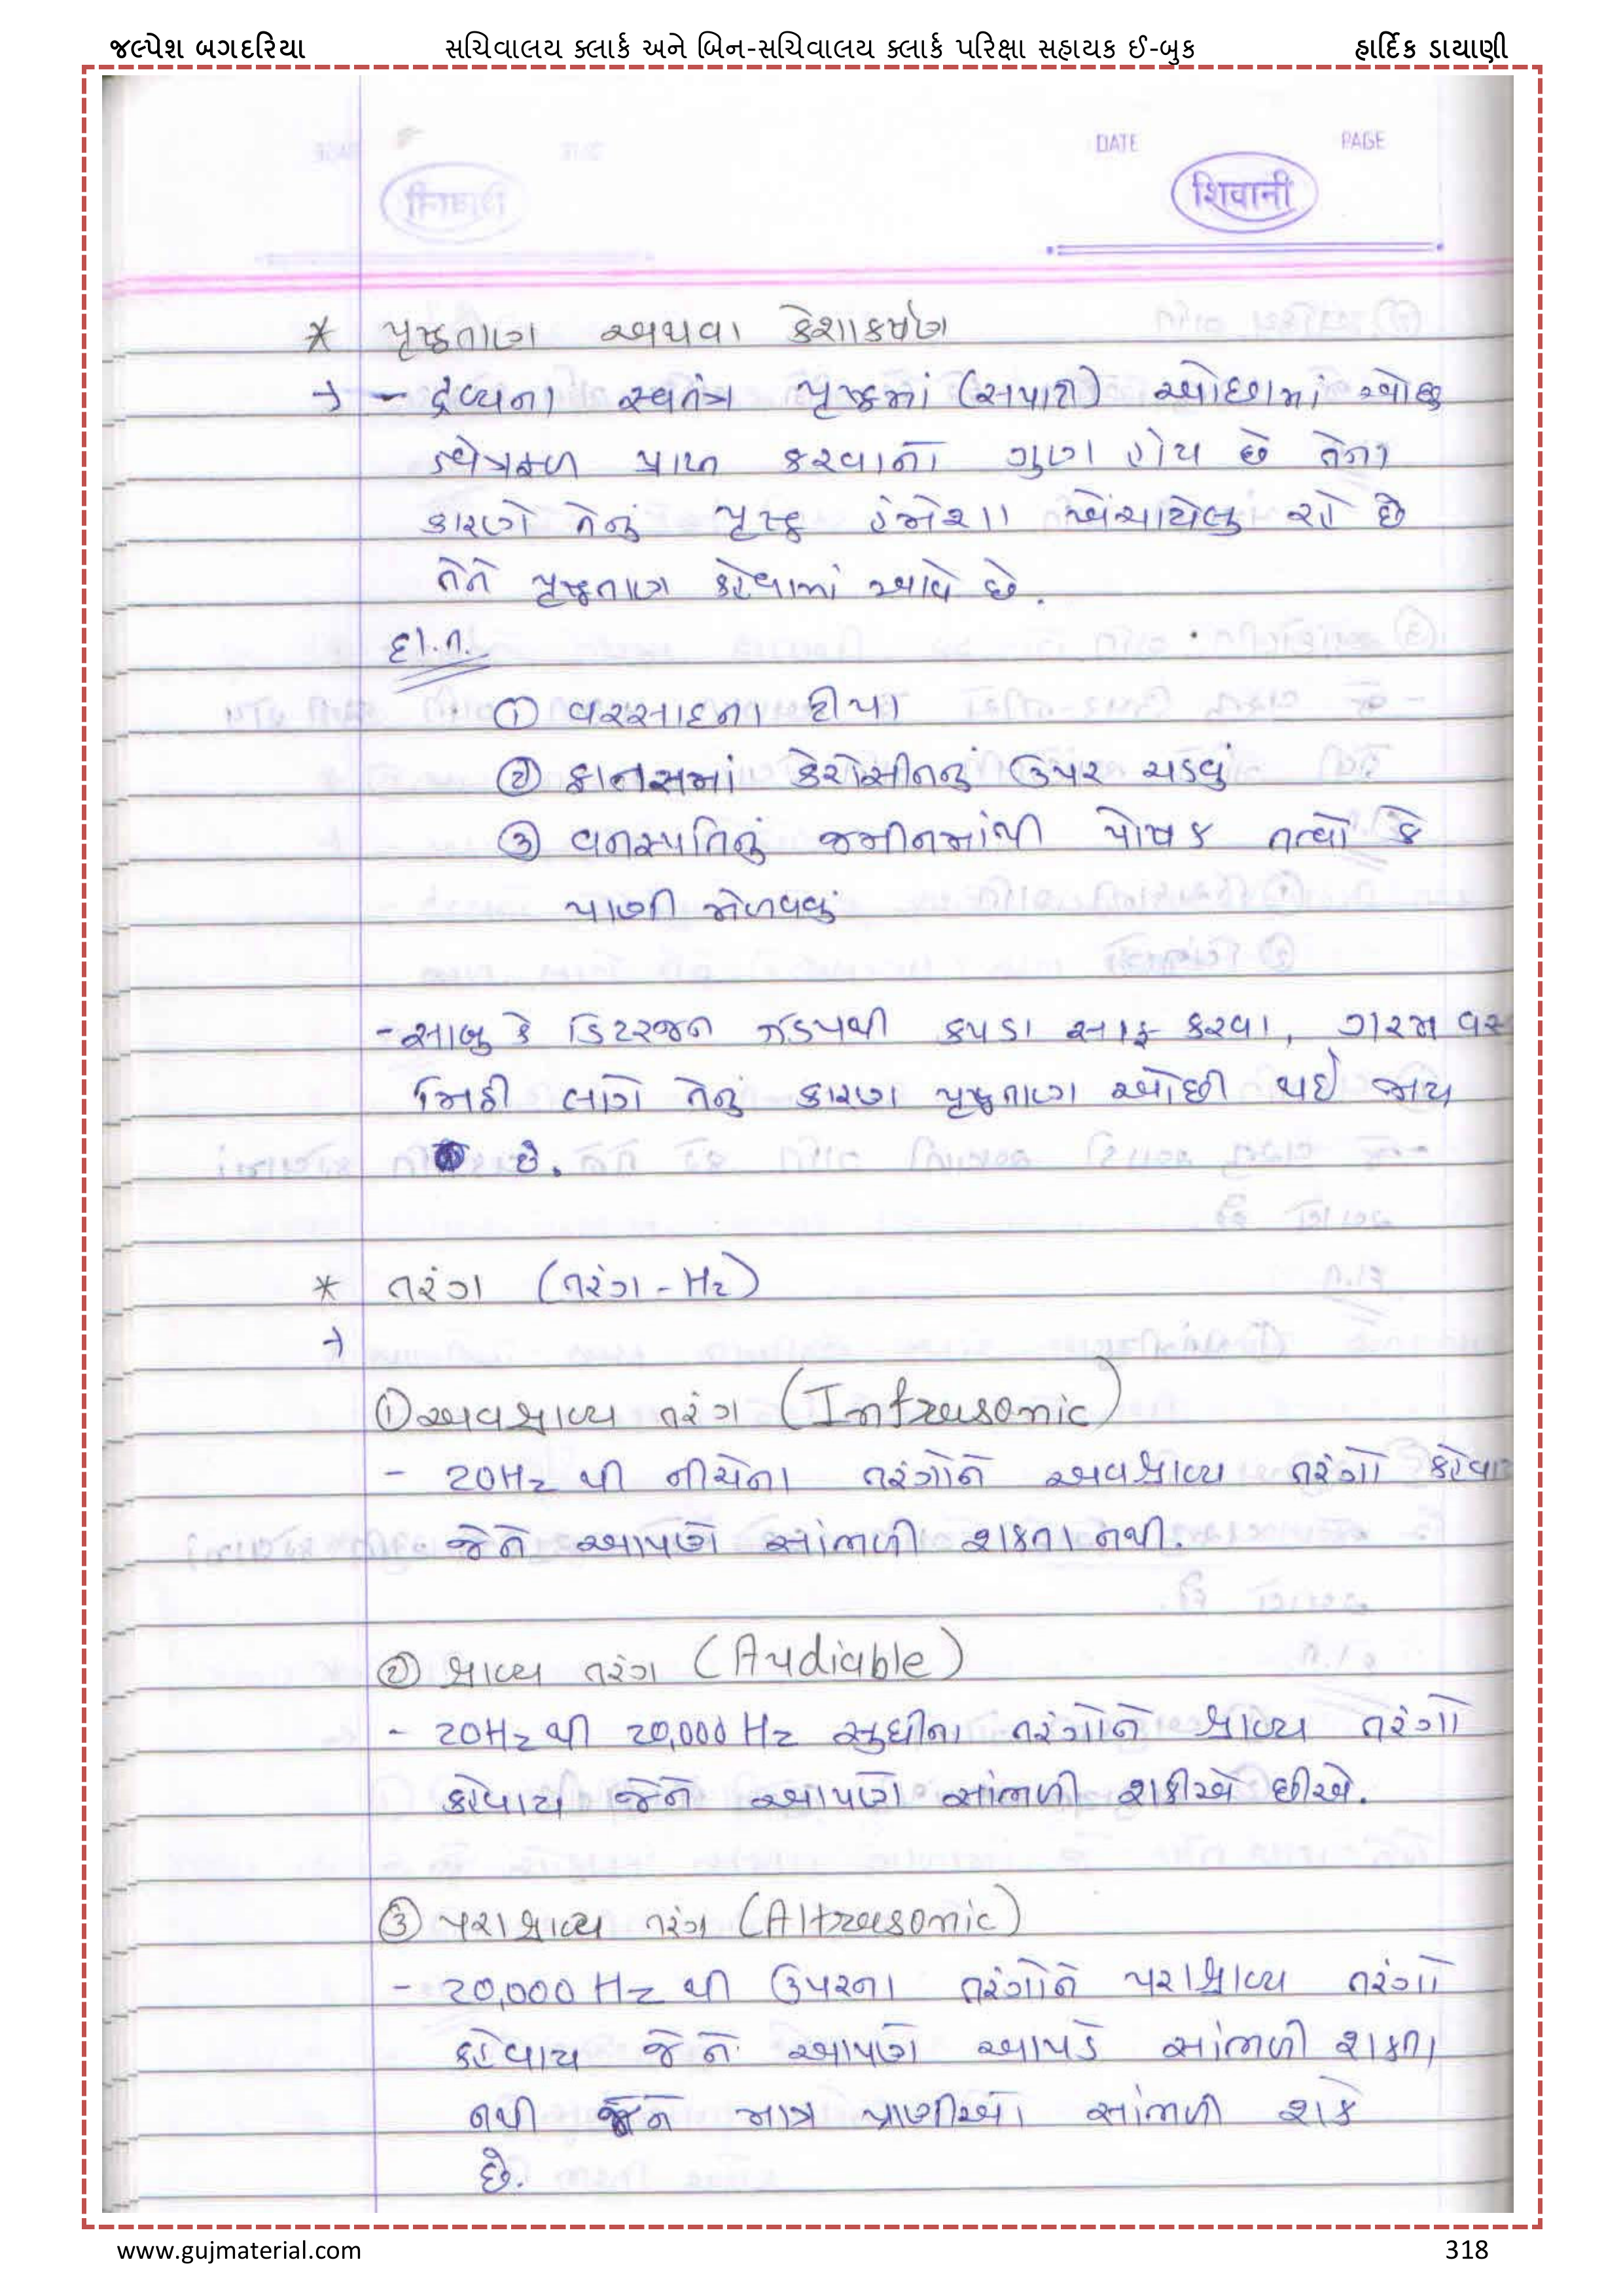 જલ્પેશ બગદરિયા સચિવાલય ક્લાર્ક અને બિન-સચિવાલય ક્લાર્ક પરિક્ષા સહાયક ઈ-બુક હાર્દિક ડાયાણી
DATE PAGE
शिवानी
* પૃષ્ઠતાણ અથવા કેશાકર્ષણ
→ - દ્રવ્યના સ્વતંત્ર પૃષ્ઠમાં (સપાટી) ઓછામાં ઓછુ
ક્ષેત્રફળ પ્રાપ્ત કરવાનો ગુણ હોય છે તેના
કારણે તેનું પૃષ્ઠ હંમેશા ખેંચાયેલુ રહે છે
તેને પૃષ્ઠતાણ કહેવામાં આવે છે.
દા.ત.
① વરસાદના ટીપા
② ફાનસમાં કેરોસીનનું ઉપર ચડવું
③ વનસ્પતિનું જમીનમાંથી પોષક તત્વો કે
પાણી મેળવવું
- સાબુ કે ડિટરજન ઝડપથી કપડા સાફ કરવા, ગરમ વસ
મિઠી લાગે તેનું કારણ પૃષ્ઠતાણ ઓછી થઈ જાય
છે.
* તરંગ (તરંગ - Hz)
→
① અવશ્રાવ્ય તરંગ (Infrasonic)
- 20Hz થી નીચેના તરંગોને અવશ્રાવ્ય તરંગો કહેવા
જેને આપણે સાંભળી શકતા નથી.
② શ્રાવ્ય તરંગ (Audiable)
- 20Hz થી 20,000 Hz સુધીના તરંગોને શ્રાવ્ય તરંગો
કહેવાય જેને આપણે સાંભળી શકીએ છીએ.
③ પરાશ્રાવ્ય તરંગ (Altrasonic)
- 20,000 Hz થી ઉપરના તરંગોને પરાશ્રાવ્ય તરંગો
કહેવાય જેને આપણે આપડે સાંભળી શકતા
નથી જેને માત્ર પ્રાણીઓ સાંભળી શકે
છે.
www.gujmaterial.com 318